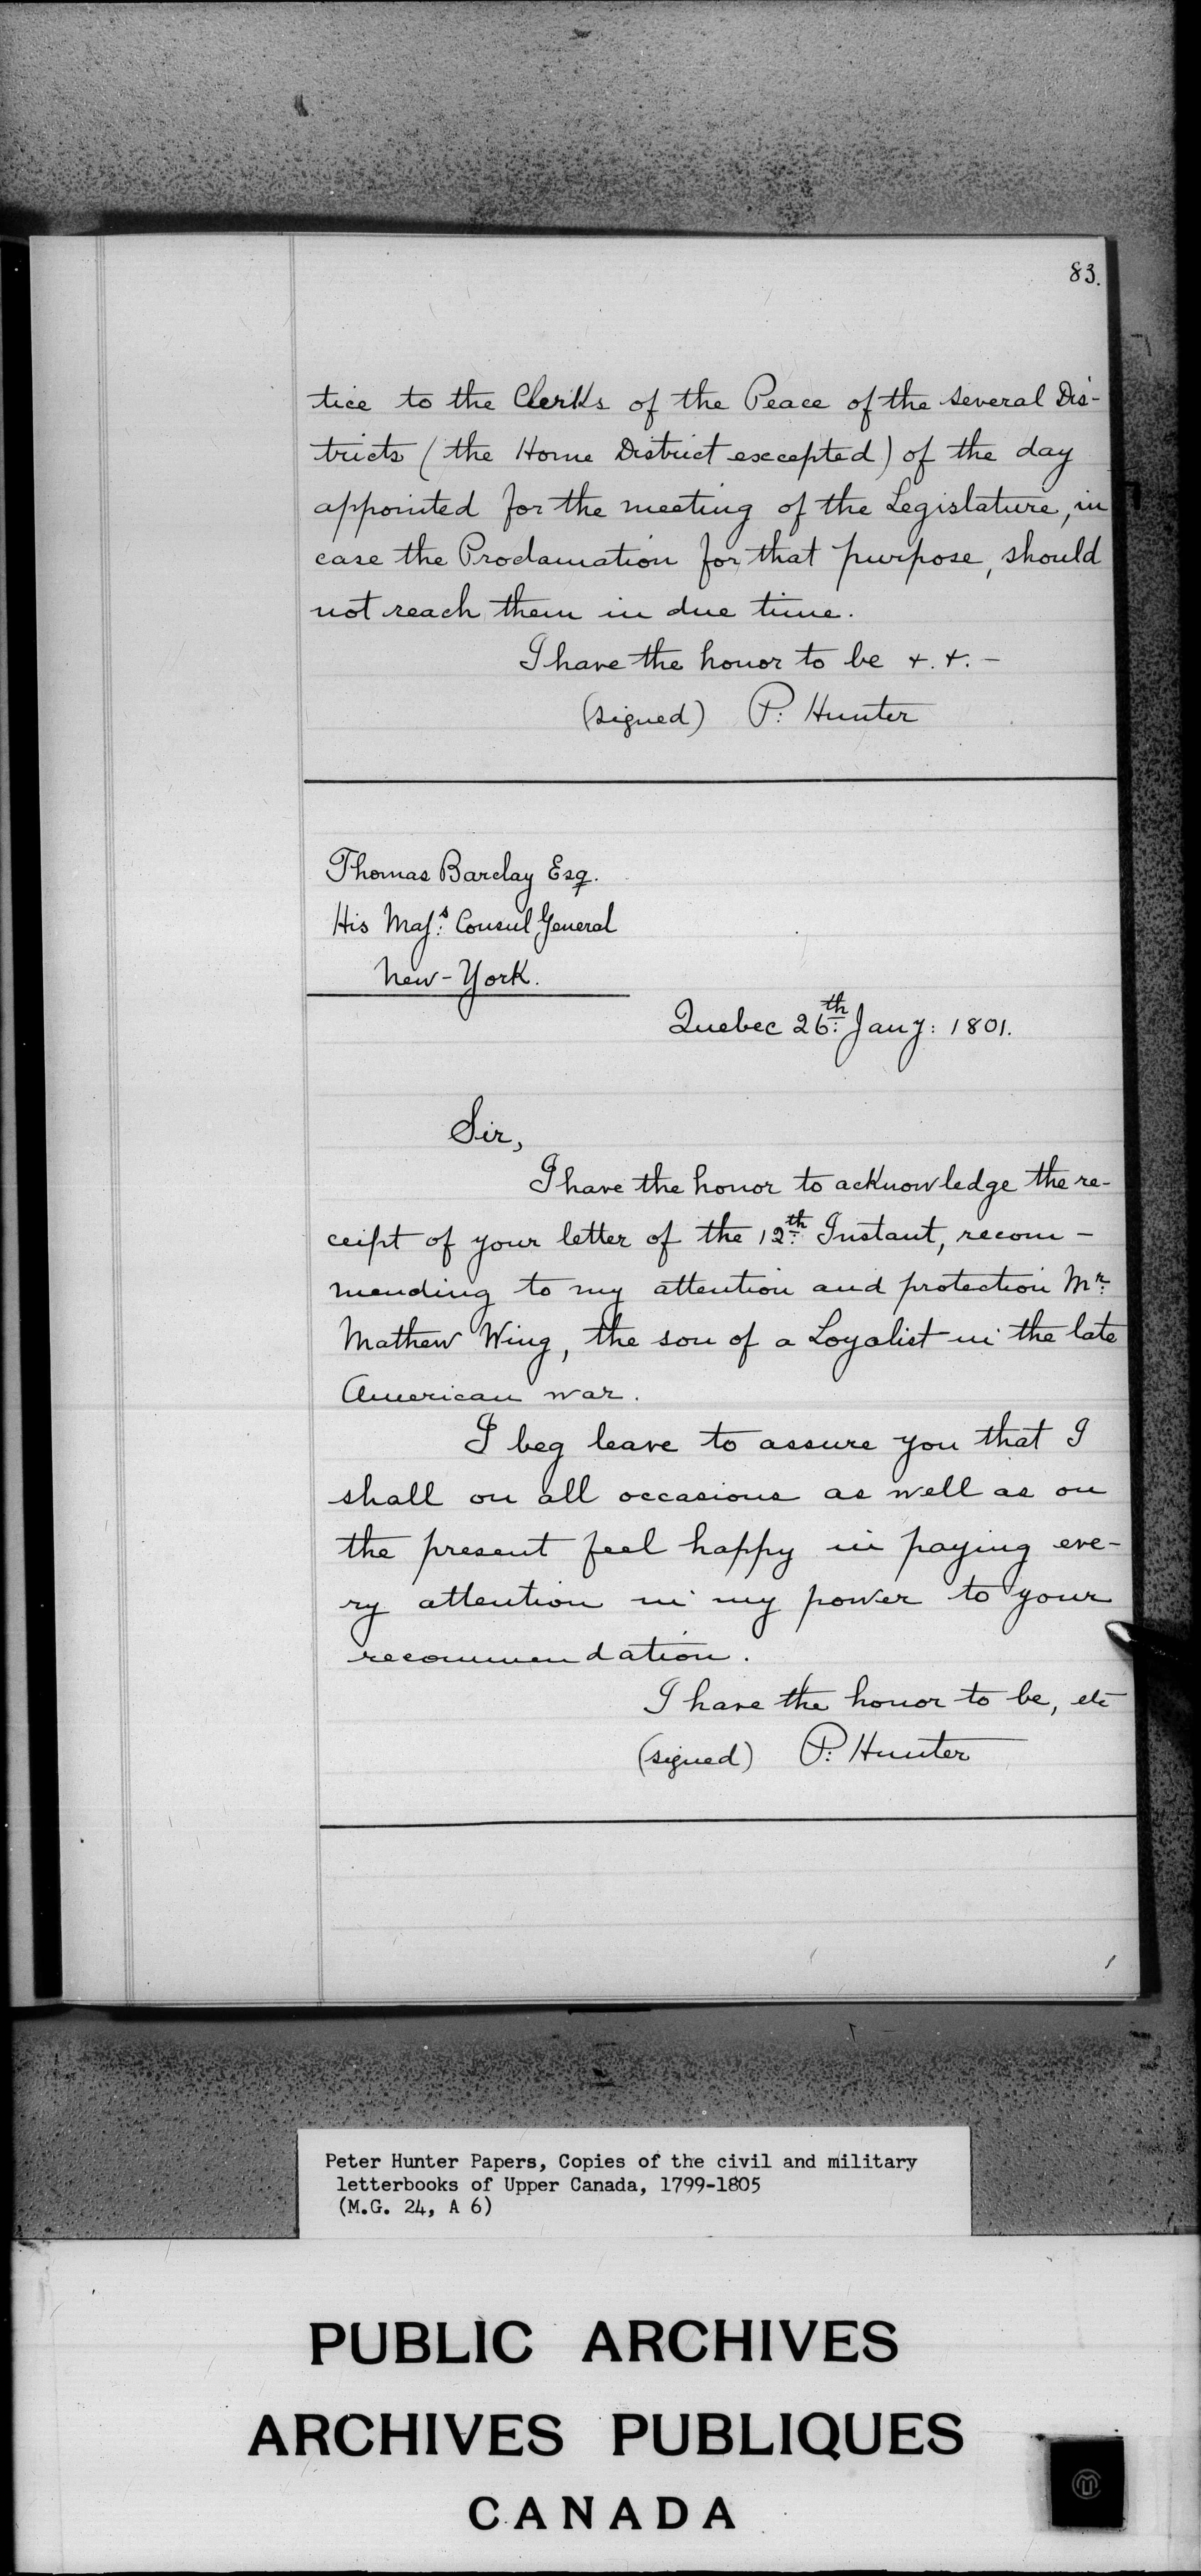 83.
tice to the Clerks of the Peace of the several Dis-
tricts (the Home District excepted) of the day
appointed for the meeting of the Legislature, in
case the Proclamation for that purpose, should
not reach them in due time.
I have the honor to be +. +. -
(signed) P: Hunter
Thomas Barclay Esq.
His Maj:s Consul General
New-York.
Quebec 26th: Jany: 1801.
Sir,
I have the honor to acknowledge the re-
ceipt of your letter of the 12th: Instant, recom-
mending to my attention and protection Mr:
Mathew Wing, the son of a Loyalist in the late
American war.
I beg leave to assure you that I
shall on all occasions as well as on
the present feel happy in paying eve-
ry attention in my power to your
recommendation.
I have the honor to be, etc
(signed) P: Hunter
Peter Hunter Papers, Copies of the civil and military
letterbooks of Upper Canada, 1799-1805
(M.G. 24, A 6)
PUBLIC ARCHIVES
ARCHIVES PUBLIQUES
CANADA